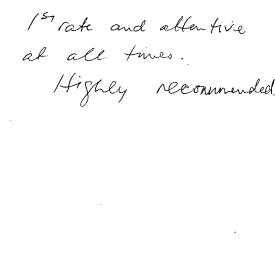 1st rate and attentive
at all times.
Highly recommended